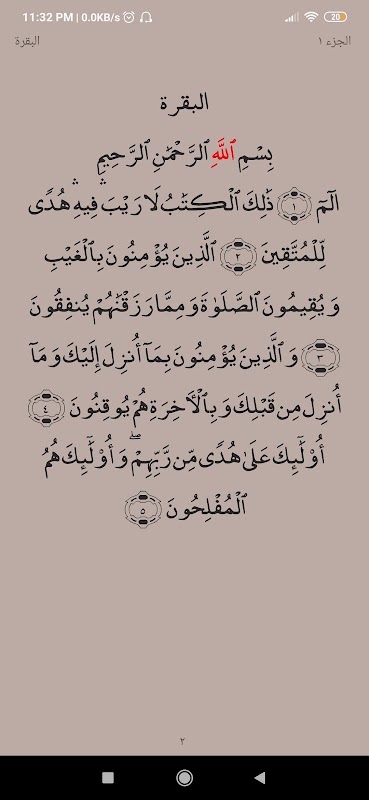 11:32 PM | 0.0KB/s
20
الجزء ١
البقرة
البقرة
بِسْمِ ٱللَّهِ ٱلرَّحْمَٰنِ ٱلرَّحِيمِ
الٓمٓ ١ ذَٰلِكَ ٱلْكِتَٰبُ لَا رَيْبَ ۛ فِيهِ ۛ هُدًى
لِّلْمُتَّقِينَ ٢ ٱلَّذِينَ يُؤْمِنُونَ بِٱلْغَيْبِ
وَيُقِيمُونَ ٱلصَّلَوٰةَ وَمِمَّا رَزَقْنَٰهُمْ يُنفِقُونَ
٣ وَٱلَّذِينَ يُؤْمِنُونَ بِمَآ أُنزِلَ إِلَيْكَ وَمَآ
أُنزِلَ مِن قَبْلِكَ وَبِٱلْأَخِرَةِ هُمْ يُوقِنُونَ ٤
أُو۟لَٰٓئِكَ عَلَىٰ هُدًى مِّن رَّبِّهِمْ ۖ وَأُو۟لَٰٓئِكَ هُمُ
ٱلْمُفْلِحُونَ ٥
٢